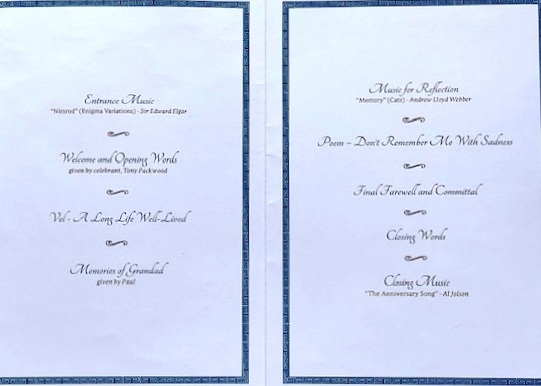 Entrance Music
"Nimrod" (Enigma Variations) - Sir Edward Elgar
Welcome and Opening Words
given by celebrant, Tony Packwood
Vel - A Long Life Well-Lived
Memories of Grandad
given by Paul
Music for Reflection
"Memory" (Cats) - Andrew Lloyd Webber
Poem – Don't Remember Me With Sadness
Final Farewell and Committal
Closing Words
Closing Music
"The Anniversary Song" - Al Jolson